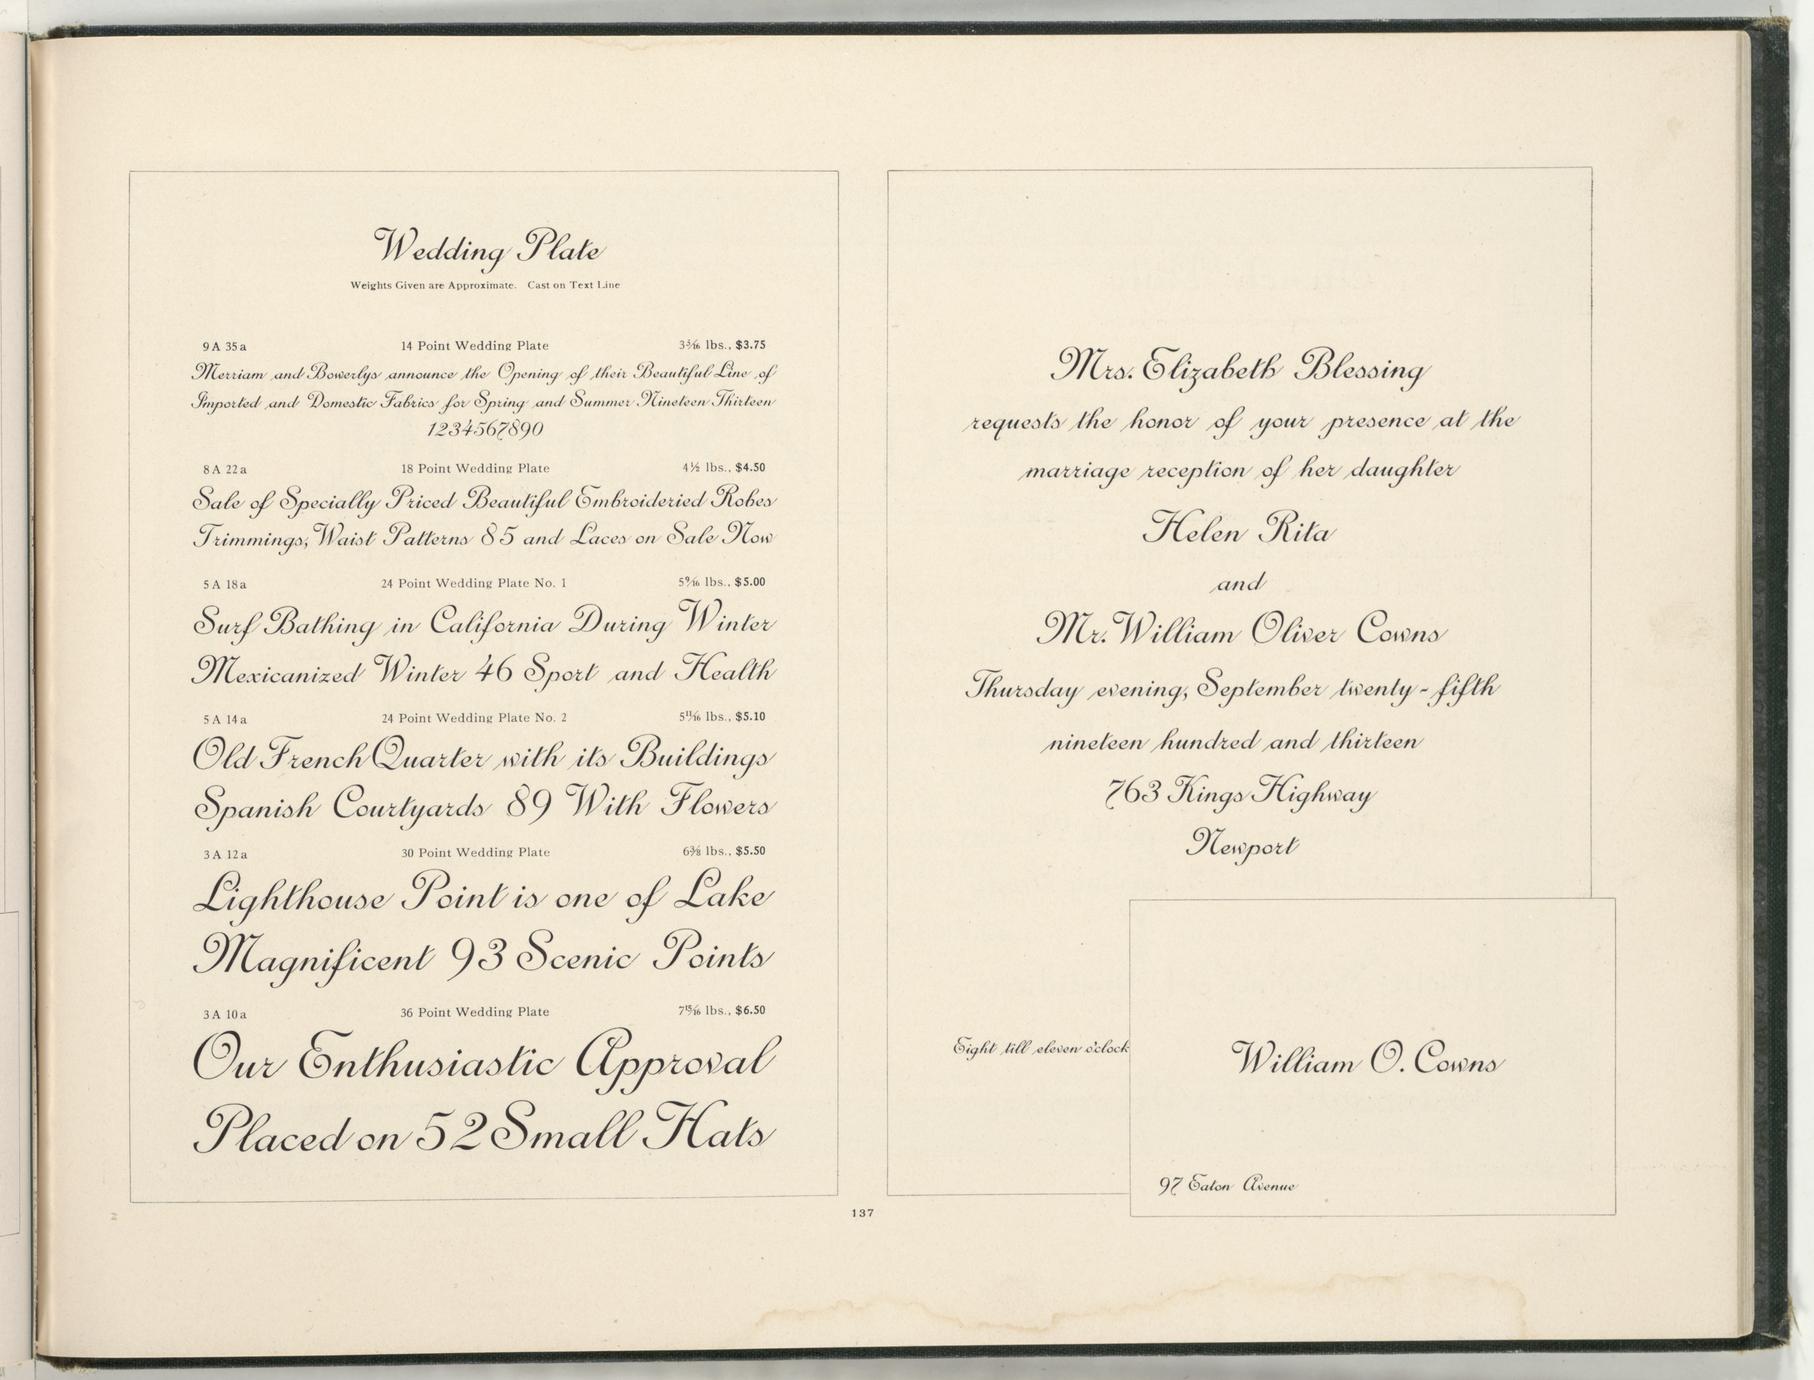 Wedding Plate
Weights Given are Approximate. Cast on Text Line
9 A 35 a 14 Point Wedding Plate 3 5/16 lbs., $3.75
Merriam and Bowerlys announce the Opening of their Beautiful Line of
Imported and Domestic Fabrics for Spring and Summer Nineteen Thirteen
1234567890
8 A 22 a 18 Point Wedding Plate 4½ lbs., $4.50
Sale of Specially Priced Beautiful Embroideried Robes
Trimmings, Waist Patterns 85 and Laces on Sale Now
5 A 18 a 24 Point Wedding Plate No. 1 5 9/16 lbs., $5.00
Surf Bathing in California During Winter
Mexicanized Winter 46 Sport and Health
5 A 14 a 24 Point Wedding Plate No. 2 5 11/16 lbs., $5.10
Old French Quarter with its Buildings
Spanish Courtyards 89 With Flowers
3 A 12 a 30 Point Wedding Plate 6⅜ lbs., $5.50
Lighthouse Point is one of Lake
Magnificent 93 Scenic Points
3 A 10 a 36 Point Wedding Plate 7 15/16 lbs., $6.50
Our Enthusiastic Approval
Placed on 52 Small Hats
Mrs. Elizabeth Blessing
requests the honor of your presence at the
marriage reception of her daughter
Helen Rita
and
Mr. William Oliver Cowns
Thursday evening, September twenty-fifth
nineteen hundred and thirteen
763 Kings Highway
Newport
Eight till eleven o'clock
William O. Cowns
97 Eaton Avenue
137